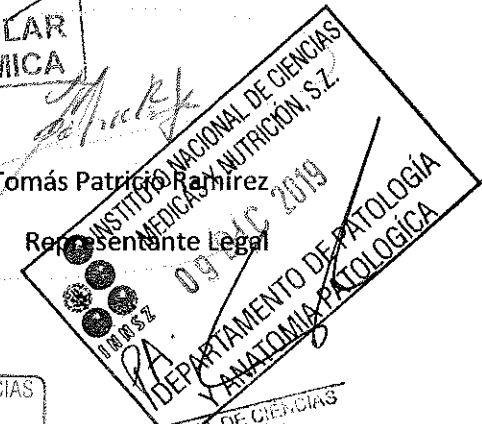 LAR
MICA
Tomás Patricio Ramírez
Representante Legal
INSTITUTO NACIONAL DE CIENCIAS
MEDICAS Y NUTRICIÓN, S.Z.
09 DIC 2019
INNSZ
P.A.
DEPARTAMENTO DE PATOLOGÍA
Y ANATOMIA PATOLOGÍCA
CIAS
DE CIENCIAS